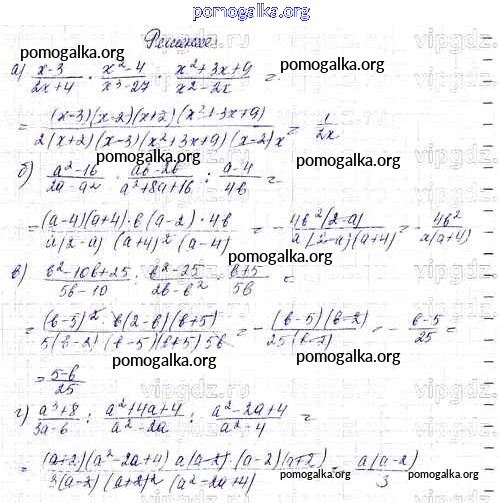 pomogalka.org
Решение
pomogalka.org pomogalka.org
а) (x-3)/(2x+4) · (x²-4)/(x³-27) · (x²+3x+9)/(x²-2x) =
= (x-3)(x-2)(x+2)(x²+3x+9) / 2(x+2)(x-3)(x²+3x+9)(x-2)x = 1/2x
pomogalka.org
б) (a²-16)/(2a-a²) · (ab-2b)/(a²+8a+16) : (a-4)/4b =
pomogalka.org
= (a-4)(a+4)·b(a-2)·4b / a(2-a)(a+4)²(a-4) = - 4b²(2-a) / a(2-a)(a+4) = - 4b² / a(a+4)
pomogalka.org pomogalka.org
в) (b²-10b+25)/(5b-10) : (b²-25)/(2b-b²) · (b+5)/5b =
= (b-5)²·b(2-b)(b+5) / 5(b-2)(b-5)(b+5)5b = - (b-5)(b-2) / 25(b-2) = - (b-5)/25 =
pomogalka.org pomogalka.org
= (5-b)/25
pomogalka.org
г) (a³+8)/(3a-6) : (a²+4a+4)/(a²-2a) : (a²-2a+4)/(a²-4) =
pomogalka.org pomogalka.org
= (a+2)(a²-2a+4)a(a-2)(a-2)(a+2) / 3(a-2)(a+2)²(a²-2a+4) = a(a-2)/3
pomogalka.org pomogalka.org